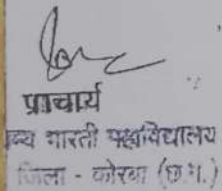 प्राचार्य
भारती महाविद्यालय
जिला - कोरबा (छ.ग.)